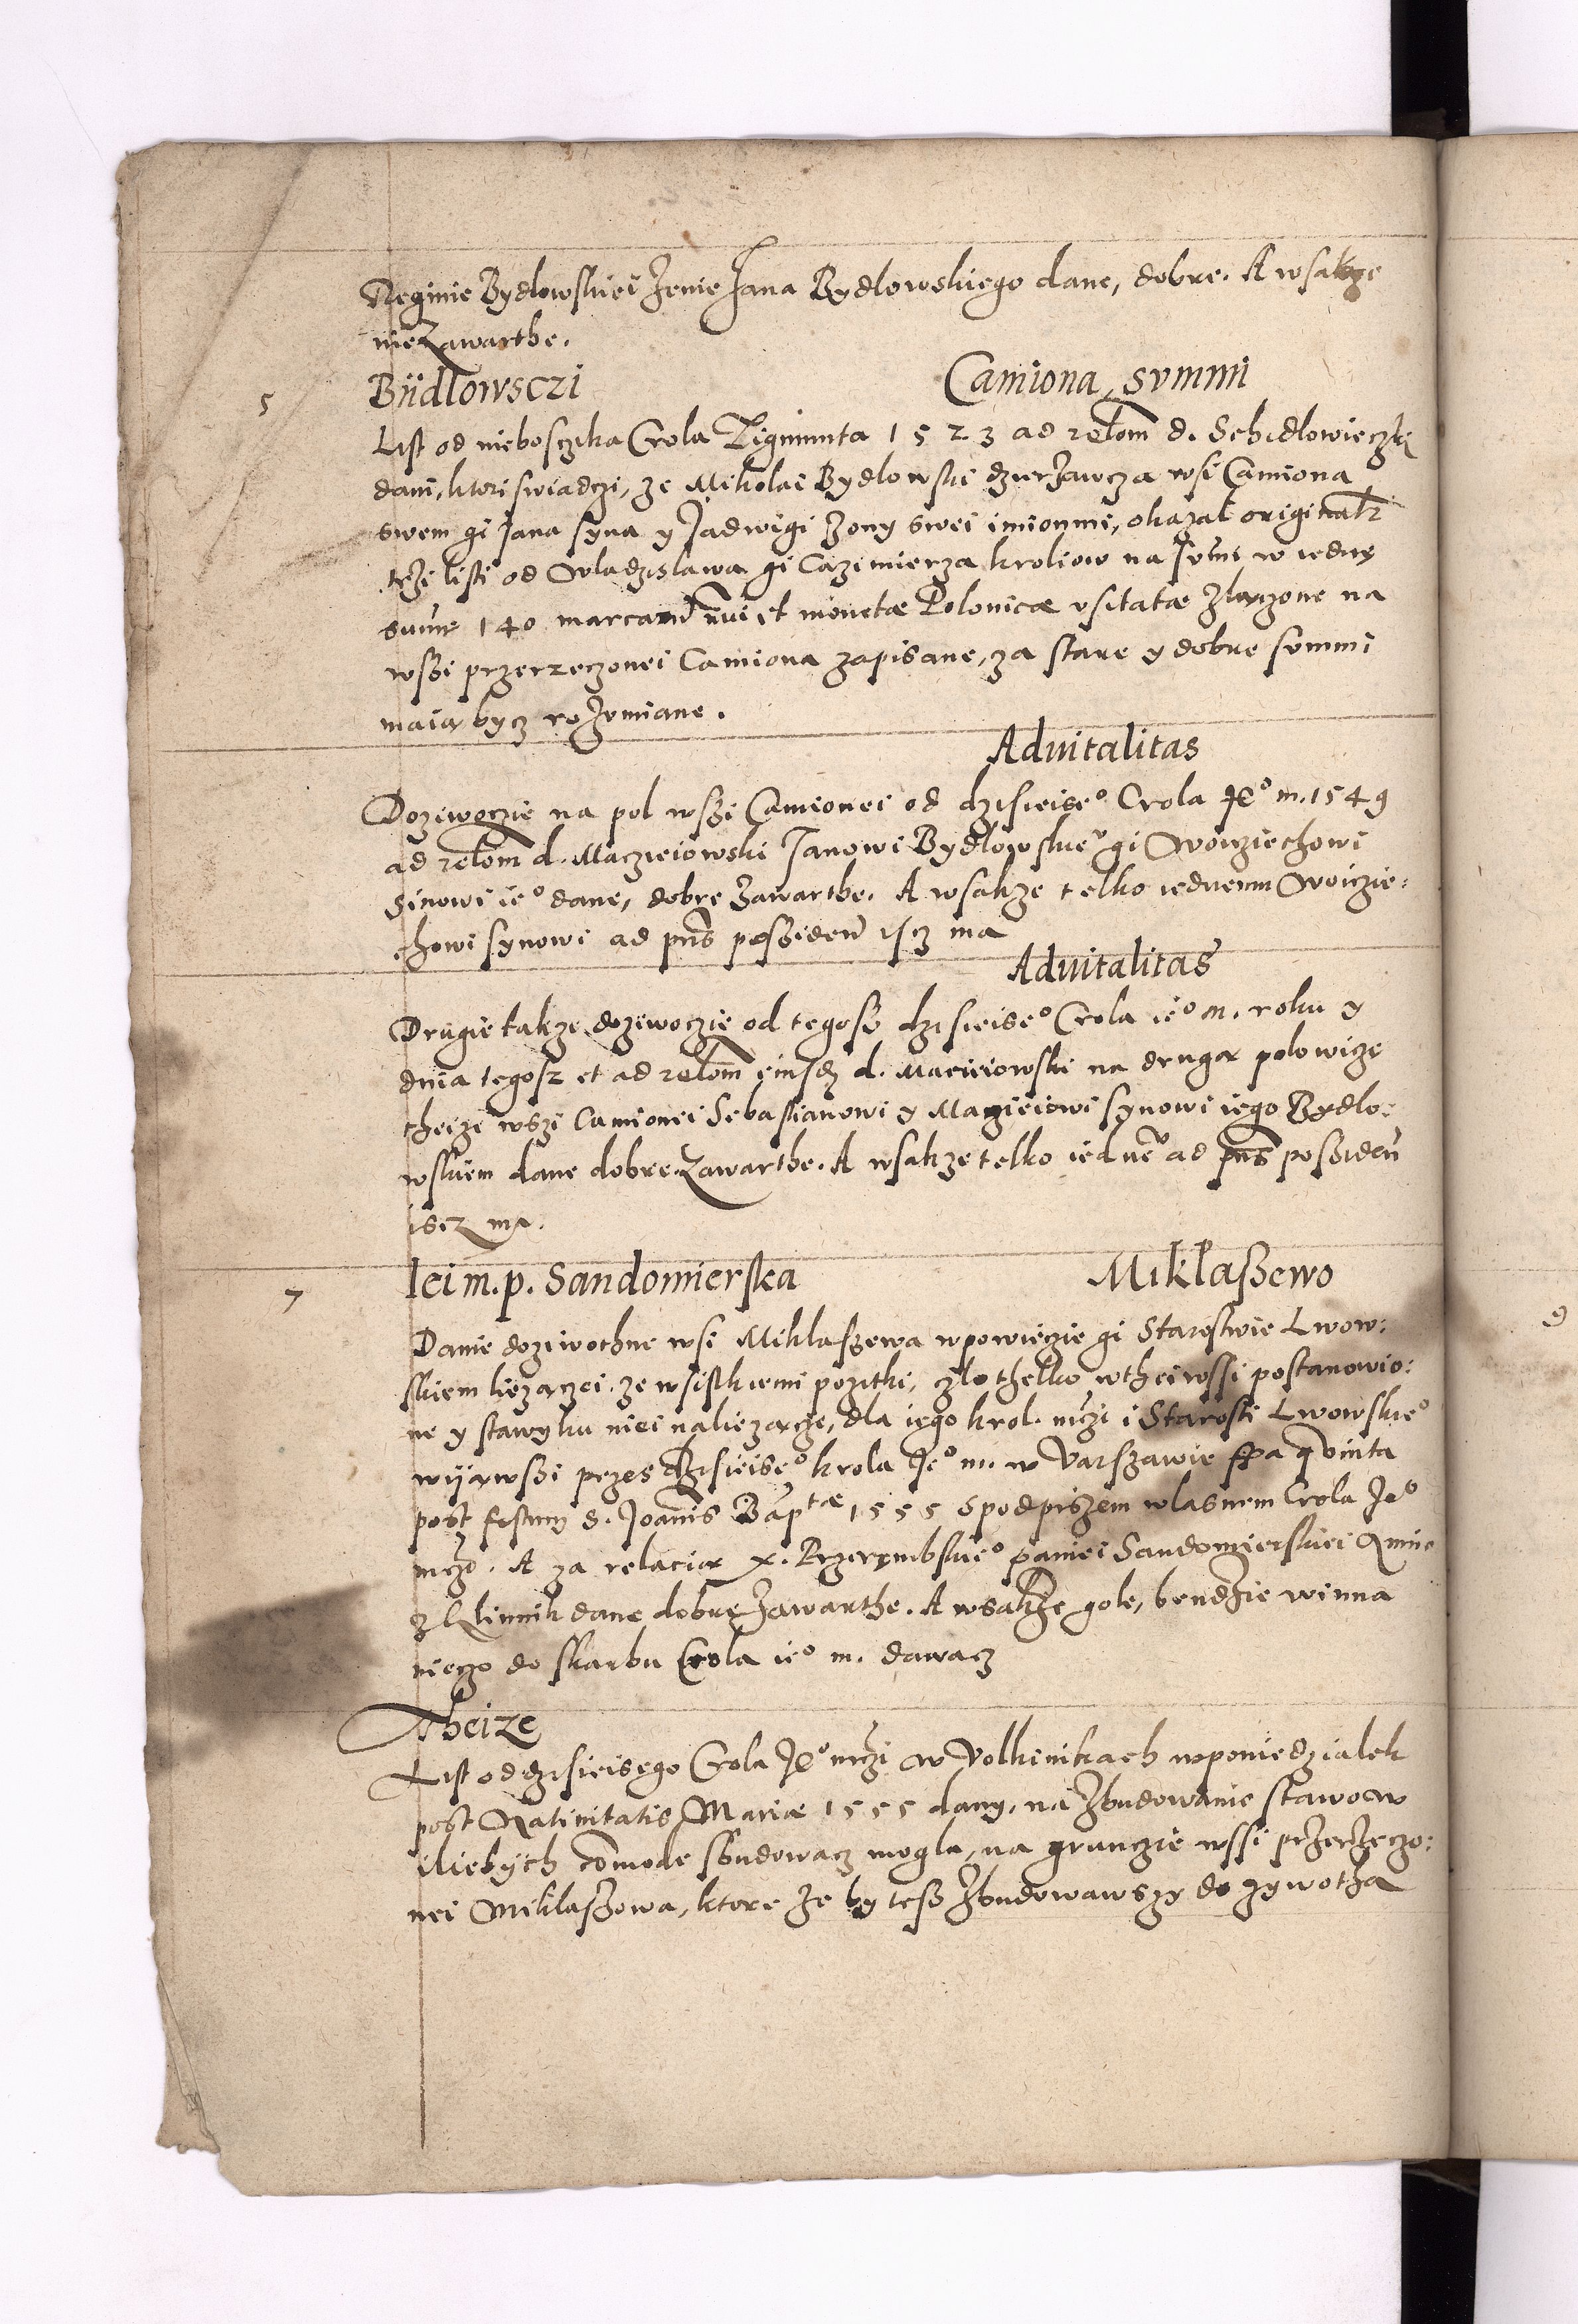 Reginie Bydlowskiei żenie Jana Bydlowskiego dane, dobre. A wsakże
niezawarthe.
5 Bÿdlowsczi Camiona, svmmi
List od nieboszika Crola Zigmunta 1523 ad relõm d. Schidlowieczki
dani, ktori swiadczi, ze Mikolai Bydlowski dzierżawcza wsi Camiona
swem gi Jana syna y Jadwigi żony swei imionmi, okazal originalr
trzi listi od Wladzislawa gi Cazimierza kroliow na sumi w iednę
summę 140 marcarũ nũi et monetæ Polonicæ vsitatæ zlączone na
wszi przerzeczonei Camiona zapisane, za stare y dobre svmmi
maią bycz rozomiane.
Aduitalitas
Doziwoczie na pol wszi Camionei od dzisieiseº Crola Jeº m. 1549
ad relõm d. Macziciowski Janowi Bydlowskieº gi Woicziechowi
sinowi ieº dane, dobre zawarthe. A wsakże telko iednemu Woiczie:
chowi synowi ad pñs possidenđ iscz ma
Aduitalitas
Drugie takze doziwoczie od tegosz dzisieiseº Crola ieº m. roku y
dnia tegosz et ad relõm eiusdẽ d. Macieiowski na drugą polowicze
theize wszi Camionei Sebastianowi y Maczieiowi synowi iego Bydlo:
wskiem dane dobre zawarthe. A wsakze telko iednẽº ad pñs possidenđ
iscz ma.
7 Iei m. p. Sandomierska Miklaszewo
Danie doziwothne wsi Miklaszewa w powieczie gi Starostwie Lwow:
skiem liezaczei, ze wsistkiemi pozitki, czlo thelko w thei wssi postanowio:
ne y stawyku niei naliezacze, dla iego krol. mczi i Starosti Lwowskieº
wyiąwszi przes dzisieiseº krola Jeº m. w Varszawie fęria qvinta
post festum S. Joannis Baptæ 1555 s podpiszem wlasnem Crola Jeº
mczi. A za relacią x. Przerembskieº paniei Sandomierskiei Annie
z dane dobre zawarthe. A wsakże gole, bendzie winna
nieczo do skarbu Crola ieº m. dawacz
Theize
List od dzisieisego Crola Jeº mczi w Volkinikach w poniedzialek
post Natiuitatis Mariæ 1555 dany, na zbudowanie stawow
iliebych cõmode sbudowacz mogla, na grunczie wssi przerzeczo:
nei Miklaszowa, ktore że by tesz zbudowawszy do zywotha
9